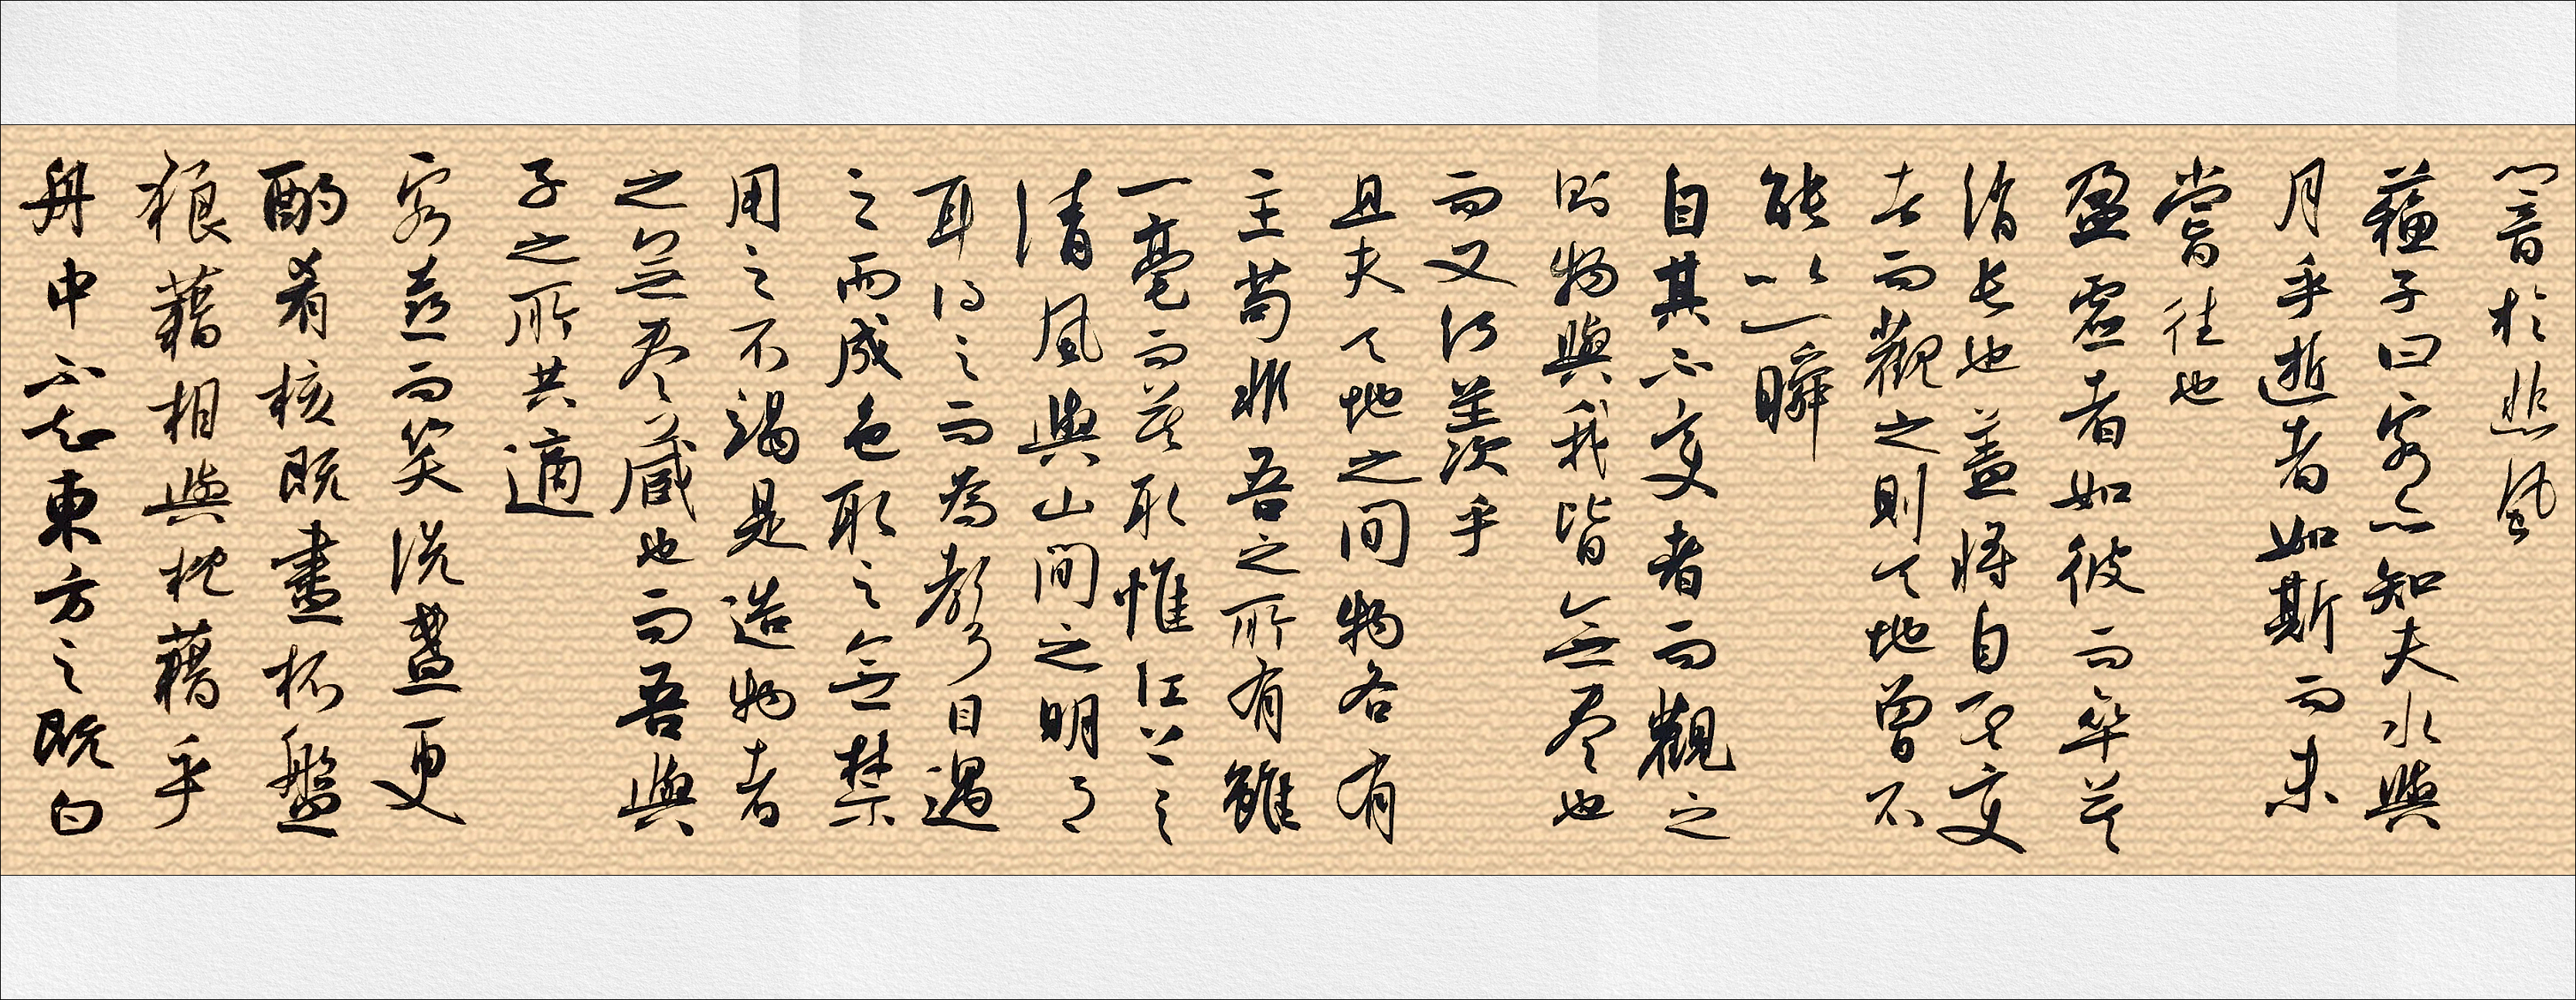 響於悲風
蘇子曰客亦知夫水與
月乎逝者如斯而未
嘗往也
盈虛者如彼而卒莫
消長也蓋將自其變
者而觀之則天地曾不
能以一瞬
自其不變者而觀之
則物與我皆無盡也
而又何羨乎
且夫天地之間物各有
主苟非吾之所有雖
一毫而莫取惟江上之
清風與山間之明月
耳得之而為聲目遇
之而成色取之無禁
用之不竭是造物者
之無盡藏也而吾與
子之所共適
客喜而笑洗盞更
酌肴核既盡杯盤
狼藉相與枕藉乎
舟中不知東方之既白